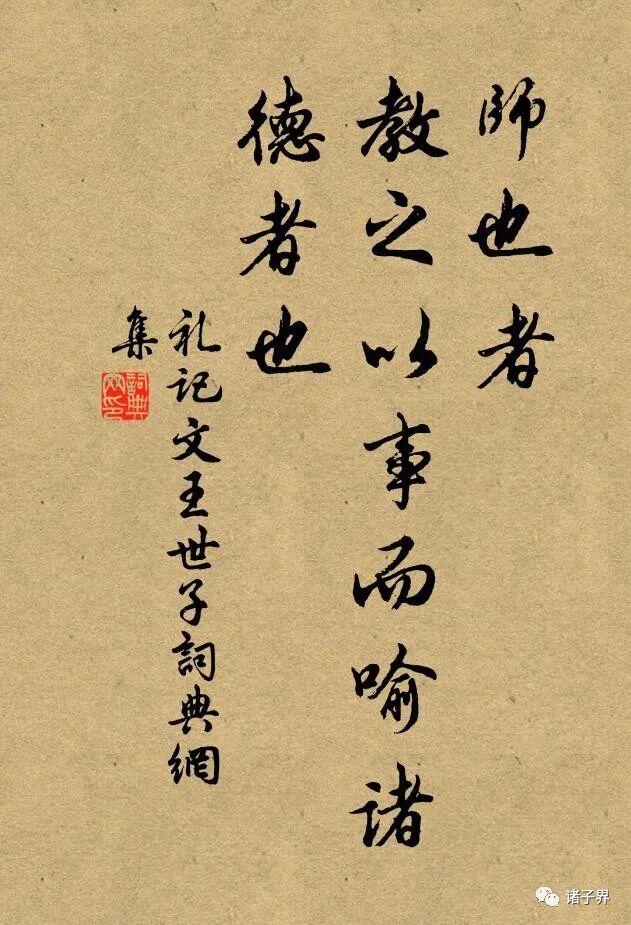 師也者
教之以事而喻諸
德者也
礼记文王世子詞典網
集
詞典
网印
诸子界